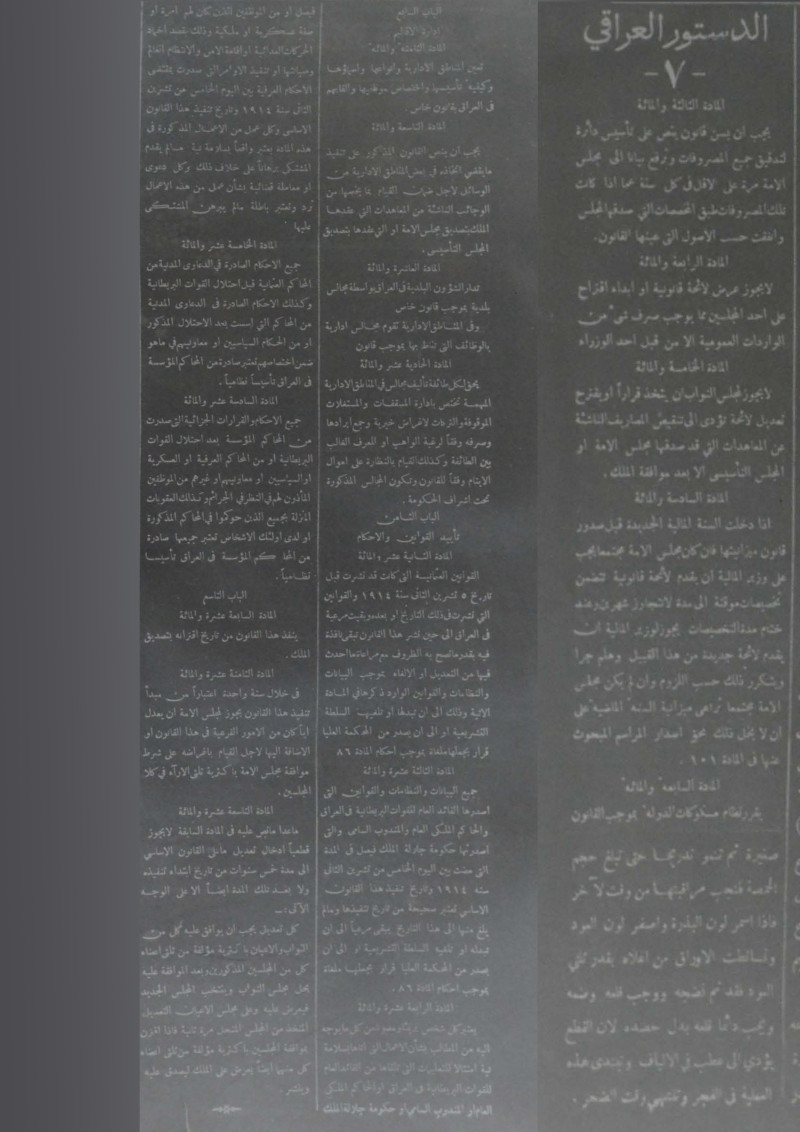 الدستور العراقي
- ٧ -
المادة الثالثة والمائة
يجب ان يسن قانون ينص على تأسيس دائرة
لتدقيق جميع المصروفات وترفع بيانا الى مجلس
الامة مرة على الاقل فى كل سنة عما اذا كانت
تلك المصروفات طبق المخصصات التى صدقها المجلس
وانفقت حسب الاصول التى عينها القانون.
المادة الرابعة والمائة
لايجوز عرض لائحة قانونية او ابداء اقتراح
على احد المجلسين مما يوجب صرف شئ من
الواردات العمومية الا من قبل احد الوزراء
المادة الخامسة والمائة
لايجوز لمجلس النواب ان يتخذ قراراً او يقترح
تعديل لائحة تؤدى الى تنقيص المصاريف الناشئة
عن المعاهدات التى قد صدقها مجلس الامة او
المجلس التأسيسى الا بعد موافقة الملك.
المادة السادسة والمائة
اذا دخلت السنة المالية الجديدة قبل صدور
قانون ميزانيتها فان كان مجلس الامة مجتمعا يجب
على وزير المالية ان يقدم لائحة قانونية تتضمن
تخصيصات موقتة الى مدة لاتتجاوز شهرين وعند
ختام مدة التخصيصات يجوز لوزير المالية ان
يقدم لائحة جديدة من هذا القبيل وهلم جرا
ويتكرر ذلك حسب اللزوم وان لم يكن مجلس
الامة مجتمعا تراعى ميزانية السنة الماضية على
ان لا يخل ذلك بحق اصدار المراسيم المبحوث
عنها فى المادة ١٠١.
المادة السابعة والمائة
يقرر نظام مسكوكات الدولة بموجب القانون
صغيرة ثم تنمو تدريجا حتى تبلغ حجم
الحمصة فتجب مراقبتها من وقت لآخر
فاذا اسمر لون البذرة واصفر لون العود
وتساقطت الاوراق من اعلاه بقدر ثلثي
العود فقد تم نضجه ووجب قلعه وضمه
ويجب دائما قلعه بدل حصده لان القطع
يؤدي الى عطب فى الالياف وتبتدى هذه
العملية فى الفجر وتنتهي وقت الضحى.
الباب السابع
ادارة الاقاليم
المادة الثامنة والمائة
تعين المناطق الادارية وانواعها واسماؤها
وكيفية تأسيسها واختصاص موظفيها والقابهم
فى العراق بقانون خاص.
المادة التاسعة والمائة
يجب ان ينص القانون المذكور على تنفيذ
مايقتضى اتخاذه فى بعض المناطق الادارية من
الوسائل لاجل ضمان القيام بما يخصها من
الوجائب الناشئة من المعاهدات التى عقدها
الملك بتصديق مجلس الامة او التى عقدها بتصديق
المجلس التأسيسى.
المادة العاشرة والمائة
تدار الشؤون البلدية فى العراق بواسطة مجالس
بلدية بموجب قانون خاص
وفى المناطق الادارية تقوم مجالس ادارية
بالوظائف التى تناط بها بموجب قانون
المادة الحادية عشر والمائة
يحق لكل طائفة تأليف مجالس فى المناطق الادارية
المهمة تختص بادارة المسقفات والمستغلات
الموقوفة والتركات لاغراض خيرية وجمع ايرادها
وصرفه وفقاً لرغبة الواهب او العرف الغالب
بين الطائفة وكذلك القيام بالنظارة على اموال
الايتام وفقاً للقانون وتكون المجالس المذكورة
تحت اشراف الحكومة.
الباب الثامن
تأييد القوانين والاحكام
المادة الثانية عشر والمائة
القوانين العثمانية التى كانت قد نشرت قبل
تاريخ ٥ تشرين الثانى سنة ١٩١٤ والقوانين
التى نشرت فى ذلك التاريخ او بعده وبقيت مرعية
فى العراق الى حين نشر هذا القانون تبقى نافذة
فيه بقدر ماتسمح به الظروف مع مراعاة ما احدث
فيها من التعديل او الالغاء بموجب البيانات
والنظامات والقوانين الوارد ذكرها فى المادة
الاتية وذلك الى ان تبدلها او تلغيها السلطة
التشريعية او الى ان يصدر من المحكمة العليا
قرار يجعلها ملغاة بموجب احكام المادة ٨٦
المادة الثالثة عشرة والمائة
جميع البيانات والنظامات والقوانين التى
اصدرها القائد العام للقوات البريطانية فى العراق
والحاكم الملكى العام والمندوب السامى والتى
اصدرتها حكومة جلالة الملك فيصل فى المدة
التى مضت بين اليوم الخامس من تشرين الثانى
سنة ١٩١٤ وتاريخ تنفيذ هذا القانون
الاساسى تعتبر صحيحة من تاريخ تنفيذها ومالم
يلغ منها الى هذا التاريخ يبقى مرعياً الى ان
تبدله او تلغيه السلطة التشريعية او الى ان
يصدر من المحكمة العليا قرار يجعلها ملغاة
بموجب احكام المادة ٨٦.
المادة الرابعة عشرة والمائة
يعتبر كل شخص
اليه من المطالب بشأن الاعمال التى اتاها بسلامة
نية امتثالا للتعليمات التى تلقاها من القائد العام
للقوات البريطانية فى العراق او الحاكم الملكى
العام او المندوب السامى او حكومة جلالة الملك
فيصل او من الموظفين الذين كان لهم امرة او
صفة عسكرية او ملكية وذلك بقصد اخماد
الحركات العدائية او اقامة الامن والانتظام العام
وصيانتها او تنفيذ الاوامر التى صدرت بمقتضى
الاحكام العرفية بين اليوم الخامس من تشرين
الثانى سنة ١٩١٤ وتاريخ تنفيذ هذا القانون
الاساسى وكل عمل من الاعمال المذكورة فى
هذه المادة يعتبر واقعاً بسلامة نية مالم يقدم
المشتكى برهاناً على خلاف ذلك وكل دعوى
او معاملة قضائية بشأن عمل من هذه الاعمال
ترد وتعتبر باطلة مالم يبرهن المشتكى
عليها
المادة الخامسة عشر والمائة
جميع الاحكام الصادرة فى الدعاوى المدنية من
المحاكم العثمانية قبل احتلال القوات البريطانية
وكذلك الاحكام الصادرة فى الدعاوى المدنية
من المحاكم التى اسست بعد الاحتلال المذكور
او من الحكام السياسيين او معاونيهم فى ماهو
ضمن اختصاصهم تعتبر صادرة من المحاكم المؤسسة
فى العراق تأسيساً نظامياً.
المادة السادسة عشر والمائة
جميع الاحكام والقرارات الجزائية التى صدرت
من المحاكم المؤسسة بعد احتلال القوات
البريطانية او من المحاكم العرفية او العسكرية
او السياسيين او معاونيهم او غيرهم من الموظفين
المأذون لهم فى النظر فى الجرائم وكذلك العقوبات
المنزلة بجميع الذين حوكموا فى المحاكم المذكورة
او لدى اولئك الاشخاص تعتبر جميعها صادرة
من المحاكم المؤسسة فى العراق تأسيسا
نظامياً.
الباب التاسع
المادة السابعة عشرة والمائة
ينفذ هذا القانون من تاريخ اقترانه بتصديق
الملك.
المادة الثامنة عشرة والمائة
فى خلال سنة واحدة اعتباراً من مبدأ
تنفيذ هذا القانون يجوز لمجلس الامة ان يعدل
ايا كان من الامور الفرعية فى هذا القانون او
الاضافة اليها لاجل القيام باغراضه على شرط
موافقة مجلس الامة باكثرية ثلثى الآراء فى كلا
المجلسين.
المادة التاسعة عشرة والمائة
ماعدا مانص عليه فى المادة السابقة لايجوز
قطعياً ادخال تعديل ما على القانون الاساسى
الى مدة خمس سنوات من تاريخ ابتداء تنفيذه
ولا بعد تلك المدة ايضاً الا على الوجه
الآتى:ــ
كل تعديل يجب ان يوافق عليه كل من
النواب والاعيان باكثرية مؤلفة من ثلثى اعضاء
كل من المجلسين المذكورين وبعد الموافقة عليه
يحل مجلس النواب وينتخب المجلس الجديد
فيعرض عليه وعلى مجلس الاعيان التعديل
المتخذ من المجلس المنحل مرة ثانية فاذا اقترن
بموافقة المجلسين باكثرية مؤلفة من ثلثى اعضاء
كل منهما ايضاً يعرض على الملك ليصدق عليه
وينشر.